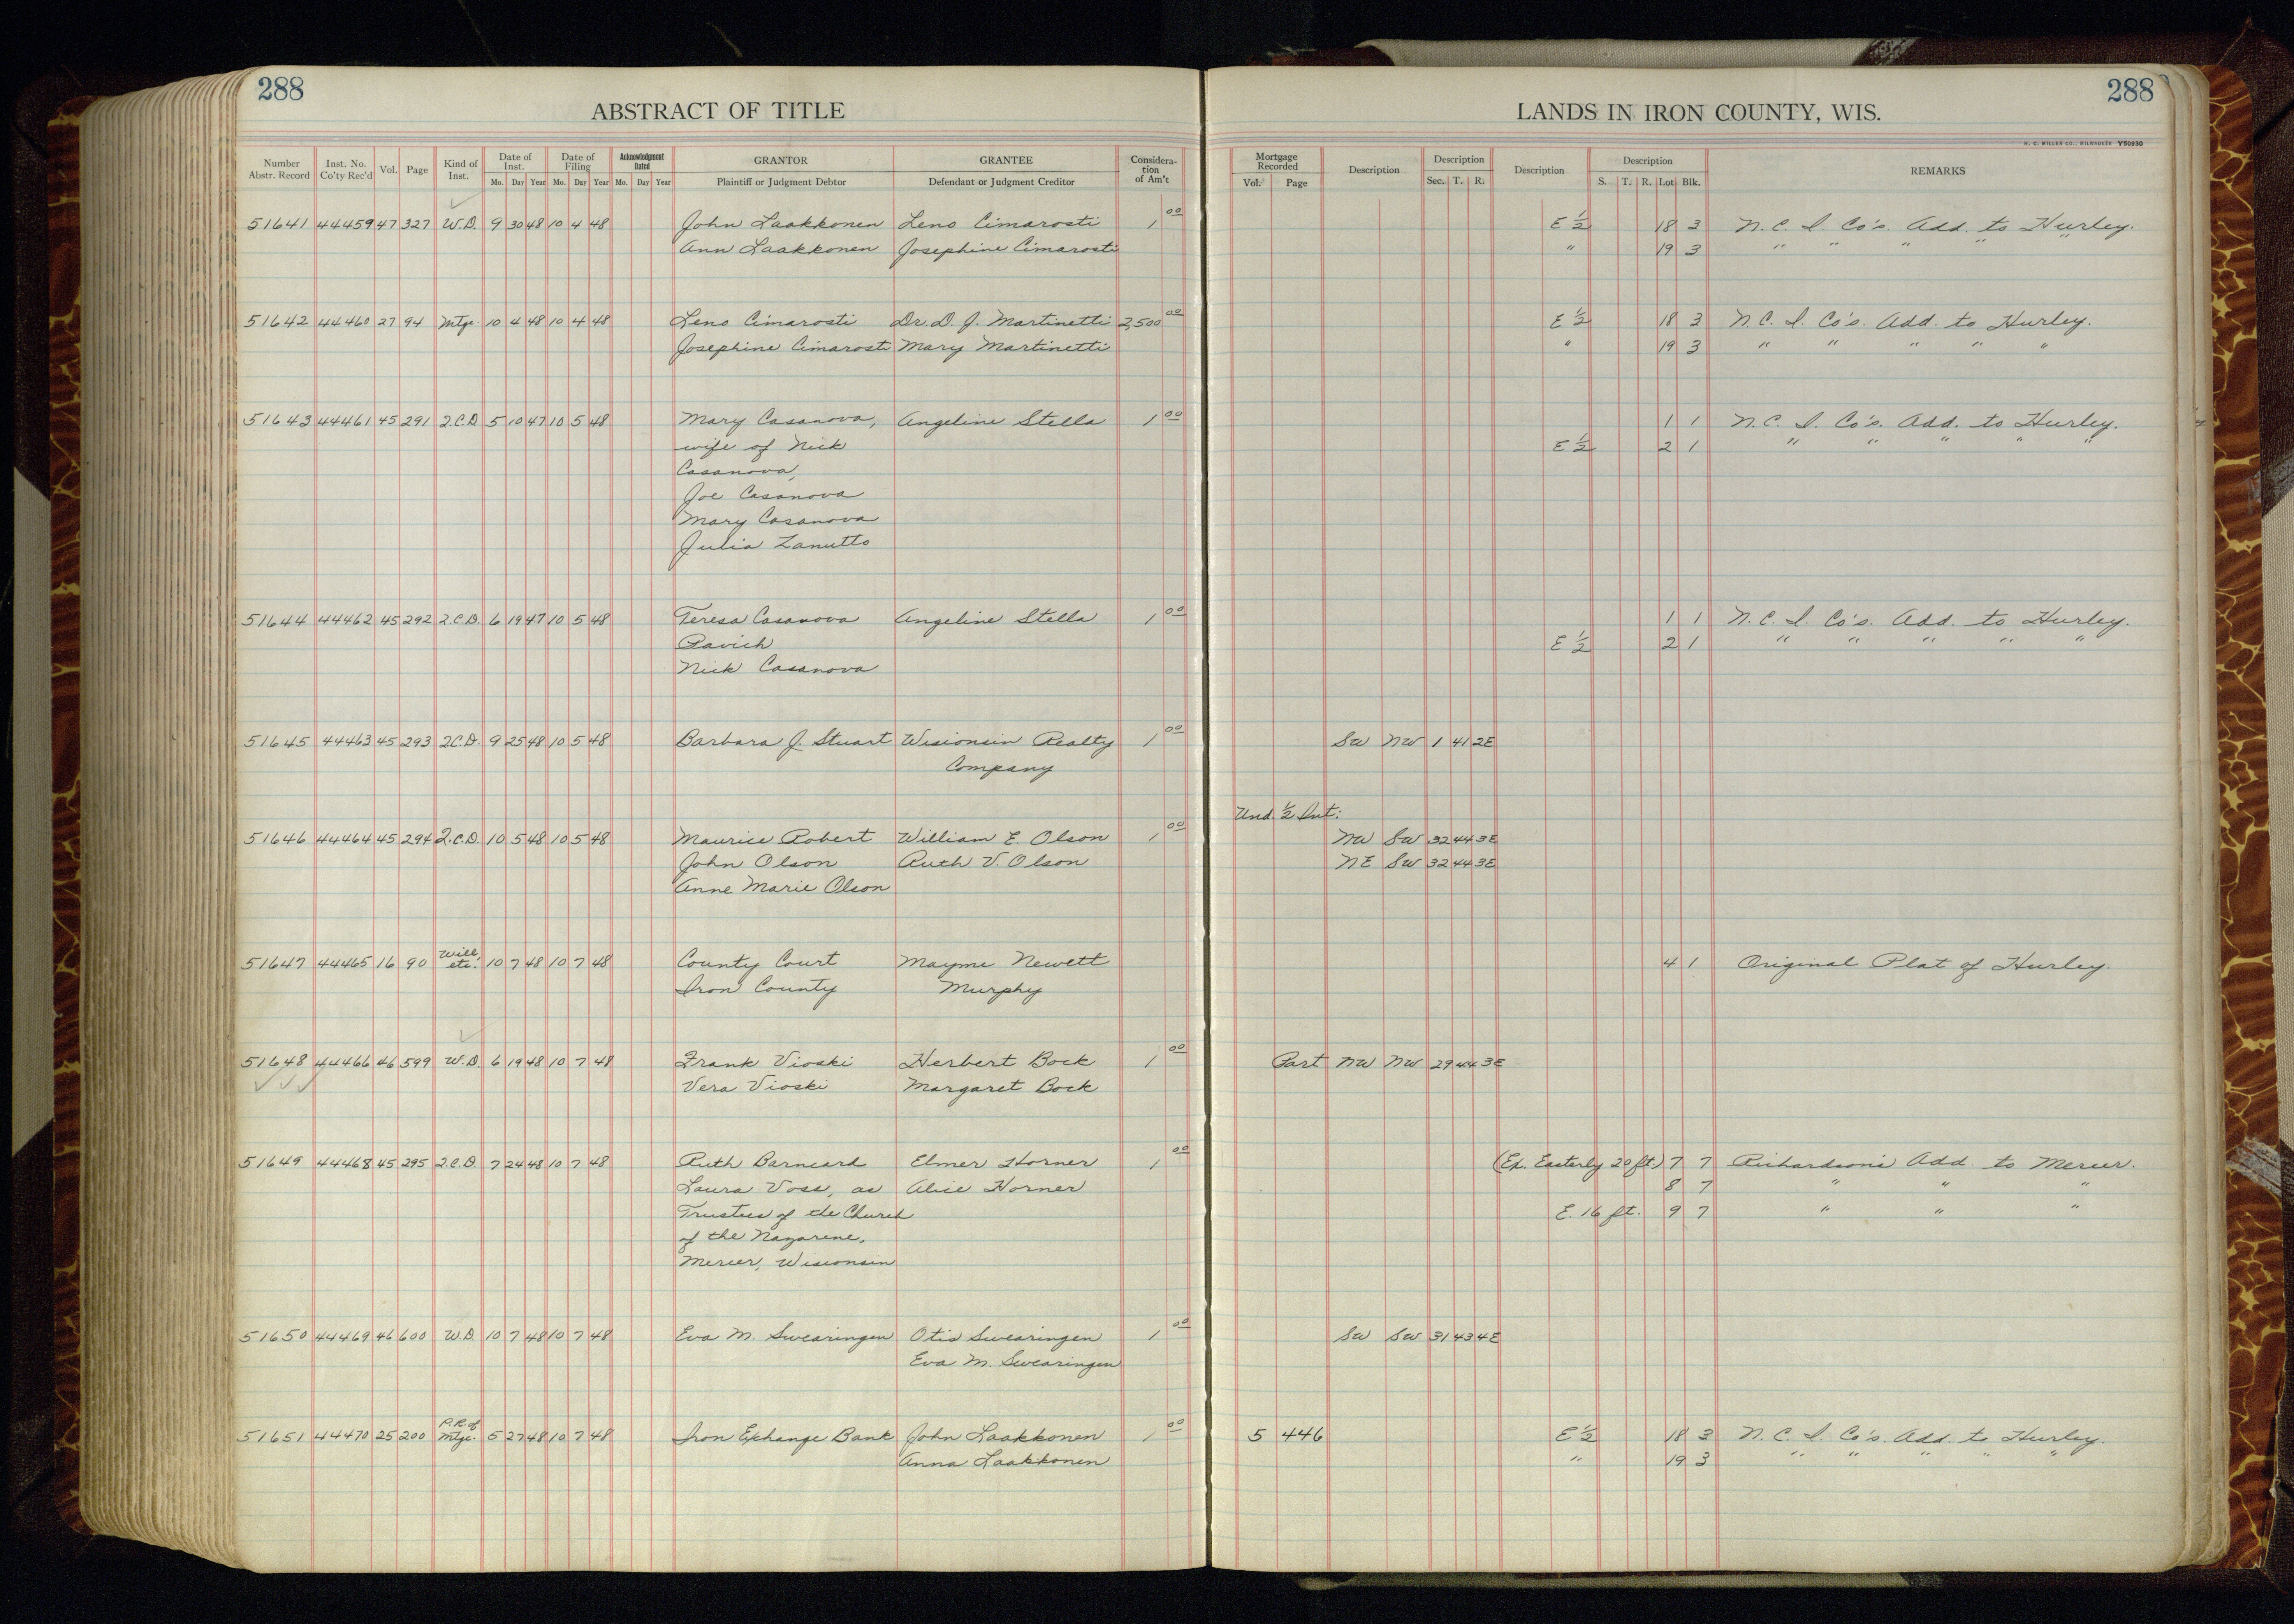 288
288
ABSTRACT OF TITLE
LANDS IN IRON COUNTY, WIS.
H. C. MILLER CO., MILWAUKEE Y50930
Number Abstr. Record Inst. No. Co'ty Rec'd Vol. Page Kind of Inst. Date of Inst. Mo. Day Year Date of Filing Mo. Day Year Acknowledgment Dated Mo. Day Year GRANTOR Plaintiff or Judgment Debtor GRANTEE Defendant or Judgment Creditor Considera-tion of Am't Mortgage Recorded Vol. Page Description Description Sec. T. R. Description Description S. T. R. Lot Blk. REMARKS
51641 44459 47 327 W.D. 9 30 48 10 4 48 John Laakkonen Leno Cimarosti 1 00 E ½ 18 3 N. C. I. Co's. Add. to Hurley.
Ann Laakkonen Josephine Cimarosti " 19 3 " " " " "
51642 44460 27 94 Mtge. 10 4 48 10 4 48 Leno Cimarosti Dr. D. J. Martinetti 2,500 00 E ½ 18 3 N. C. I. Co's. Add. to Hurley.
Josephine Cimarosti Mary Martinetti " 19 3 " " " " "
51643 44461 45 291 Q.C.D. 5 10 47 10 5 48 Mary Casanova, Angeline Stella 1 00 1 1 N.C. I. Co's. Add. to Hurley.
wife of Nick E ½ 2 1 " " " " "
Casanova,
Joe Casanova
Mary Casanova
Julia Zanutto
51644 44462 45 292 Q.C.D. 6 19 47 10 5 48 Teresa Casanova Angeline Stella 1 00 1 1 N. C. I. Co's. Add. to Hurley.
Pavich E ½ 2 1 " " " " "
Nick Casanova
51645 44463 45 293 Q.C.D. 9 25 48 10 5 48 Barbara J. Stuart Wisconsin Realty 1 00 SW NW 1 41 2E
Company
Und. ½ Int:
51646 44464 45 294 Q.C.D. 10 5 48 10 5 48 Maurice Robert William E. Olson 1 00 NW SW 32 44 3E
John Olson Ruth V. Olson NE SW 32 44 3E
Anne Marie Olson
51647 44465 16 90 Will etc. 10 7 48 10 7 48 County Court Mayme Newett 4 1 Original Plat of Hurley.
Iron County Murphy
51648 44466 46 599 W.D. 6 19 48 10 7 48 Frank Vioski Herbert Bock 1 00 Part NW NW 29 44 3E
Vera Vioski Margaret Bock
51649 44468 45 295 Q.C.D. 7 24 48 10 7 48 Ruth Barneard Elmer Horner 1 00 (Ex. Easterly 20 ft.) 7 7 Richardson's Add. to Mercer.
Laura Voss, as Alice Horner 8 7 " " "
Trustees of the Church E. 16 ft. 9 7 " " "
of the Nazarene,
Mercer, Wisconsin
51650 44469 46 600 W.D. 10 7 48 10 7 48 Eva M. Swearingen Otis Swearingen 1 00 SW SW 31 43 4E
Eva M. Swearingen
51651 44470 25 200 P.R. of Mtge. 5 27 48 10 7 48 Iron Exchange Bank John Laakkonen 1 00 5 446 E ½ 18 3 N. C. I. Co's. Add. to Hurley.
Anna Laakkonen " 19 3 " " " " "